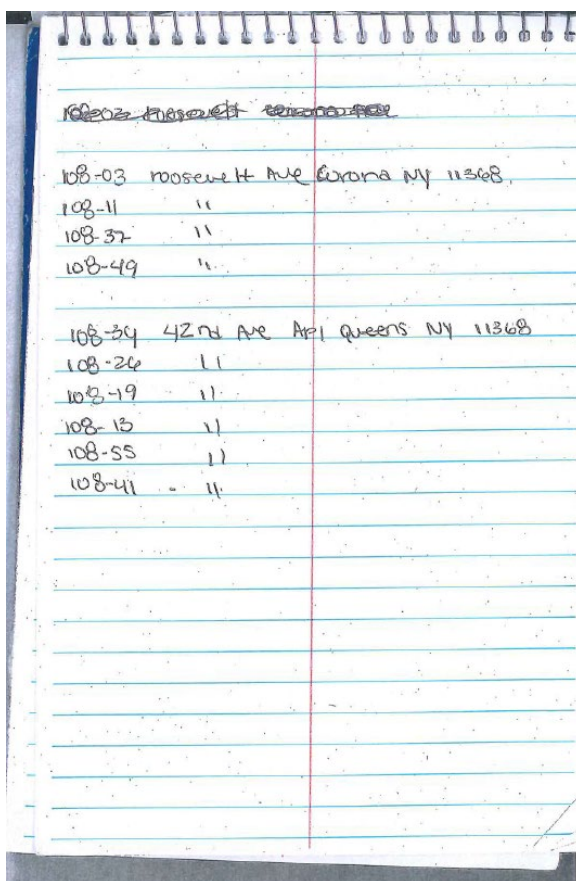 108-03 roosevelt Ave Corona NY 11368
108-11 "
108-37 "
108-49 "
108-34 42nd Ave Ap1 Queens NY 11368
108-26 "
108-19 "
108-13 "
108-55 "
108-41 - "